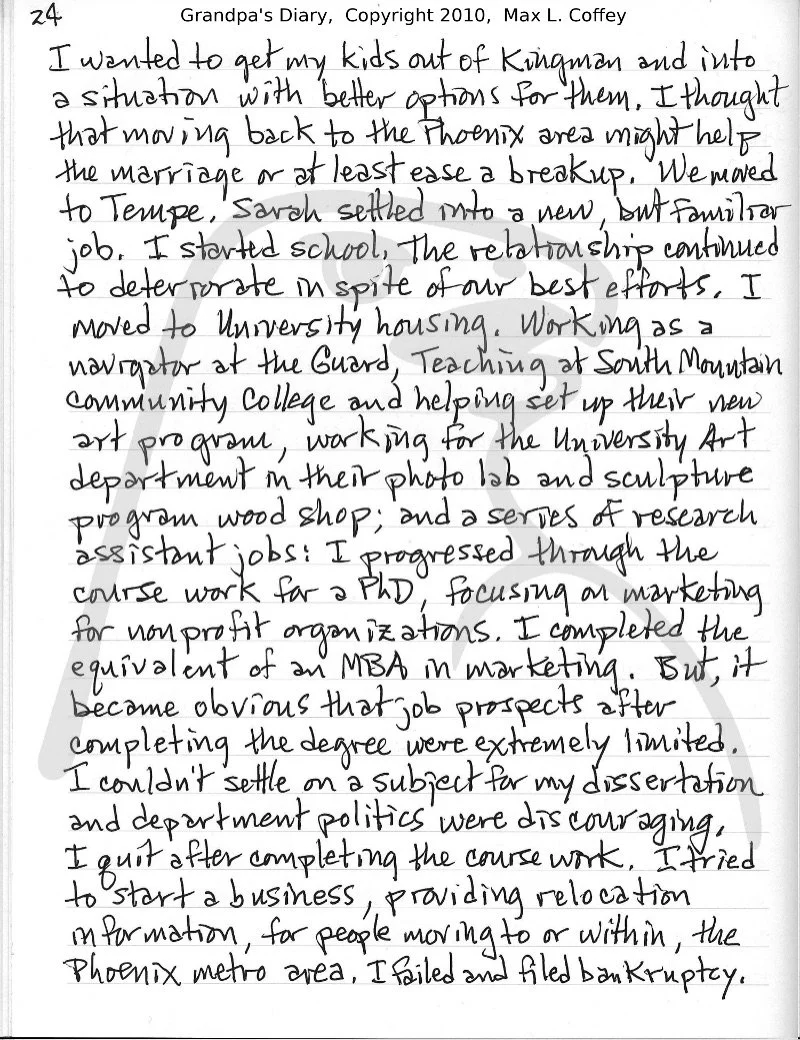 24
Grandpa's Diary, Copyright 2010, Max L. Coffey
I wanted to get my kids out of Kingman and into
a situation with better options for them. I thought
that moving back to the Phoenix area might help
the marriage or at least ease a breakup. We moved
to Tempe. Sarah settled into a new, but familiar
job. I started school. The relationship continued
to deteriorate in spite of our best efforts. I
moved to University housing. Working as a
navigator at the Guard, Teaching at South Mountain
Community College and helping set up their new
art program, working for the University Art
department in their photo lab and sculpture
program wood shop; and a series of research
assistant jobs: I progressed through the
course work for a PhD, focusing on marketing
for nonprofit organizations. I completed the
equivalent of an MBA in marketing. But, it
became obvious that job prospects after
completing the degree were extremely limited.
I couldn't settle on a subject for my dissertation
and department politics were discouraging.
I quit after completing the course work. I tried
to start a business, providing relocation
information, for people moving to or within, the
Phoenix metro area. I failed and filed bankruptcy.